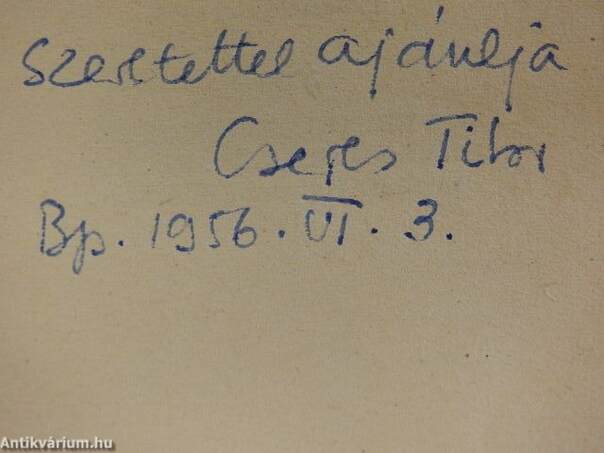 Szeretettel ajánlja
Cseres Tibor
Bp. 1956. VI. 3.
Antikvárium.hu